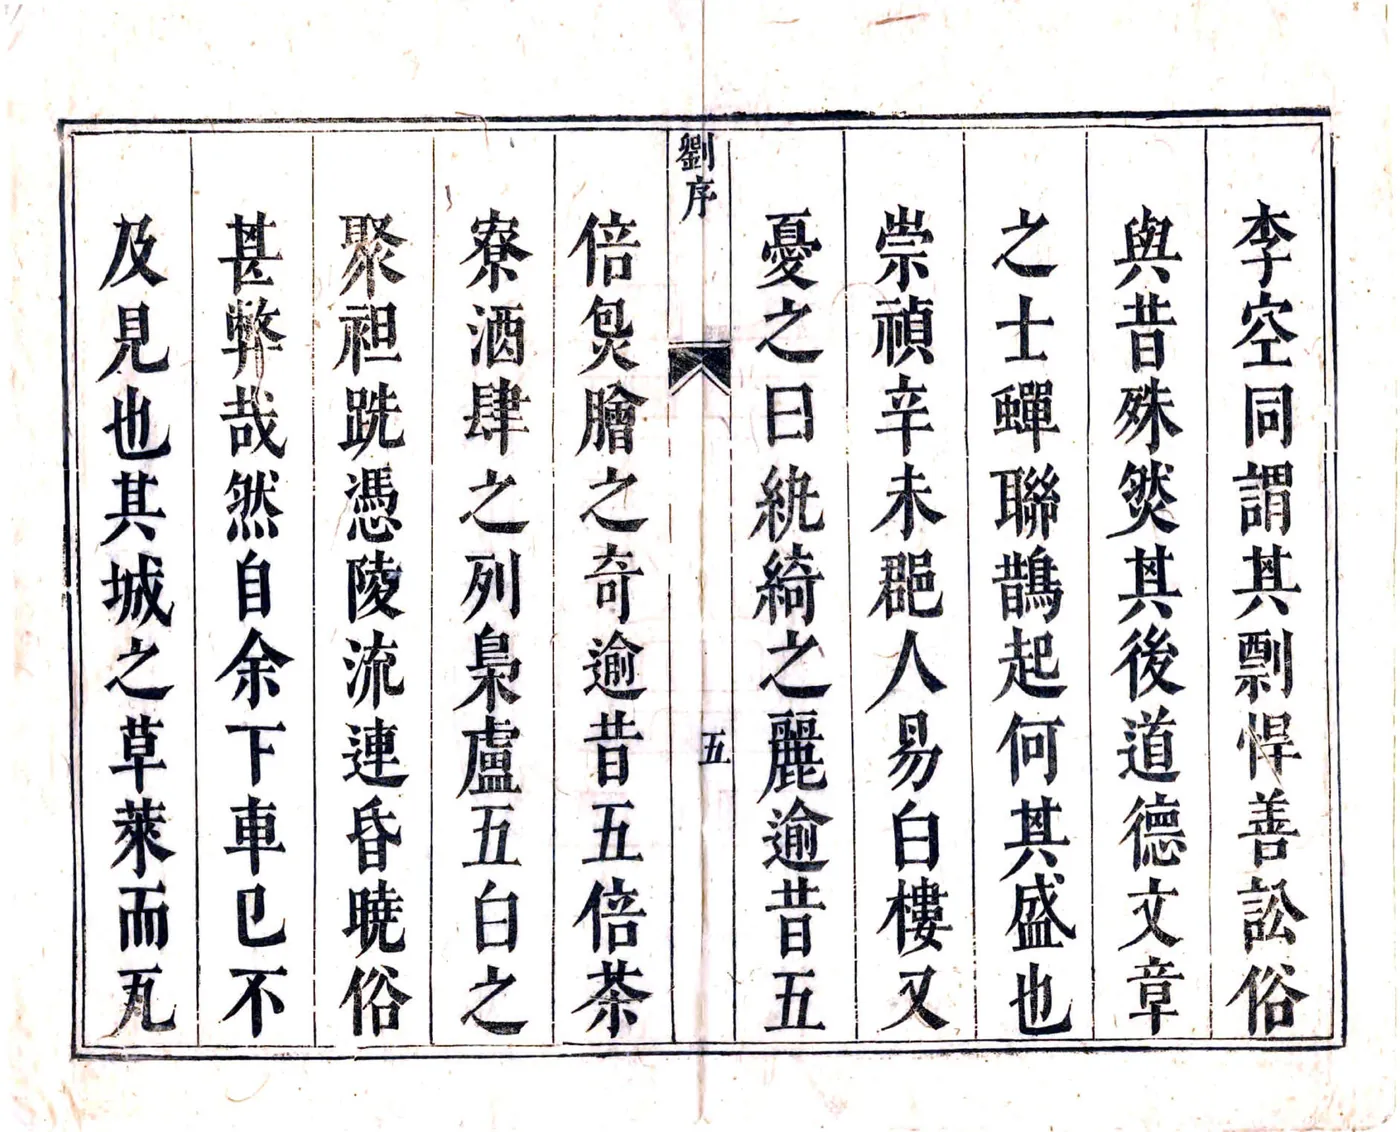 李空同謂其剽悍善訟俗
與昔殊然其後道德文章
之士蟬聯鵲起何其盛也
崇禎辛未郡人易白樓又
憂之曰紈綺之麗逾昔五
劉序
五
倍炰膾之奇逾昔五倍茶
寮酒肆之列梟盧五白之
聚袒跣憑陵流連昏曉俗
甚弊哉然自余下車已不
及見也其城之草萊而瓦